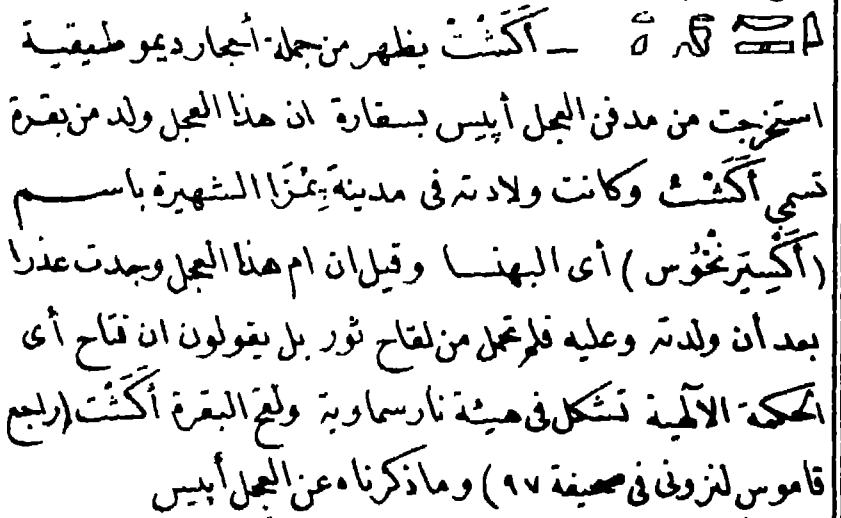 ـ أَكَشْتْ يظهر من جملة أحجار ديموطيقية
استخرجت من مدفن العجل أپيس بسقارة ان هذا العجل ولد من بقرة
تسمى أَكَشْتْ وكانت ولادته فى مدينة بِمْزَا الشهيرة باسم
(أَكْسِيَرِنْخُوس) أى البهنسا وقيل ان ام هذا العجل وجدت عذرا
بعد أن ولدته وعليه فلم تحمل من لقاح ثور بل يقولون ان فتاح أى
الحكمة الآلهية تشكل فى هيئة نار سماوية ولقح البقرة أكَشْت (راجع
قاموس لنزونى فى صحيفة ٩٧) وما ذكرناه عن العجل أپيس